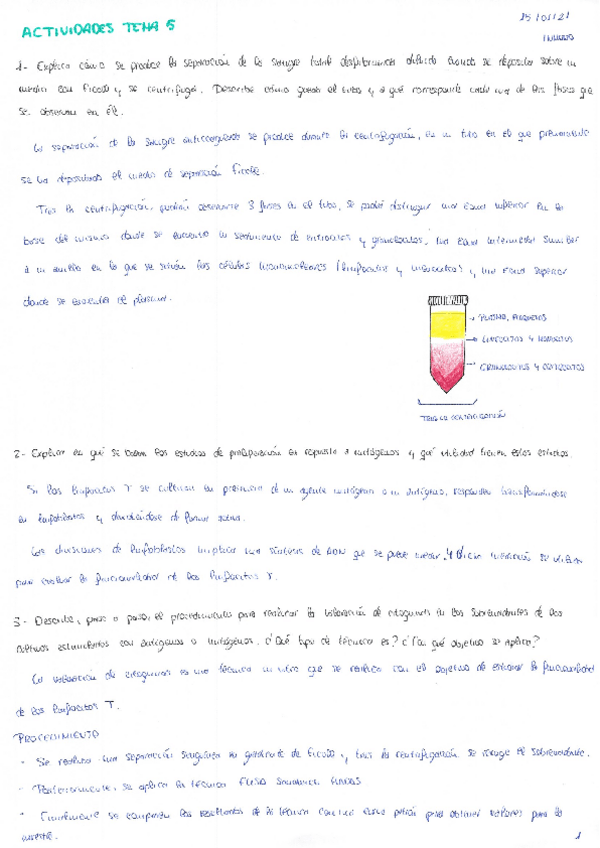 ACTIVIDADES TEMA 5
15/01/21
1- Explica cómo se produce la separación de la sangre total desfibrinada diluida cuando se deposita sobre un
medio con Ficoll y se centrifuga. Describe cómo queda el tubo y a qué corresponde cada una de las fases que
se observan en él.
La separación de la sangre anticoagulada se produce durante la centrifugación, en un tubo en el que previamente
se ha depositado el medio de separación Ficoll.
Tras la centrifugación, podrán observarse 3 fases en el tubo, se podrá distinguir una capa inferior en la
base del mismo donde se encuentra un sedimento de eritrocitos y granulocitos, una capa intermedia similar
a un anillo en la que se sitúan las células mononucleares (linfocitos y monocitos) y una capa superior
donde se encuentra el plasma.
PLASMA, PLAQUETAS
LINFOCITOS Y MONOCITOS
GRANULOCITOS Y ERITROCITOS
TRAS LA CENTRIFUGACIÓN
2- Explica en qué se basan los estudios de proliferación en repuesta a mitógenos y qué utilidad tienen estos estudios.
Si los linfocitos T se cultivan en presencia de un agente mitógeno o un antígeno, responden transformándose
en linfoblastos y dividiéndose de forma activa.
Las divisiones de linfoblastos implican una síntesis de ADN que se puede medir. Y dicha se utiliza
para evaluar la funcionalidad de los linfocitos T.
3- Describe, paso a paso, el procedimiento para realizar la valoración de citoquinas en los sobrenadantes de los
cultivos estimulados con antígenos o mitógenos. ¿Qué tipo de técnica es? ¿Con qué objetivo se aplica?
La valoración de citoquinas es una técnica in vitro que se realiza con el objetivo de estudiar la funcionalidad
de los linfocitos T.
PROCEDIMIENTO
- Se realiza una separación sanguínea en gradiente de Ficoll, y tras la centrifugación se recoge el sobrenadante.
- Posteriormente, se aplica la técnica ELISA Sandwich
- Finalmente se comparan los resultados de la técnica con una curva patrón para obtener valores para la
muestra.
1